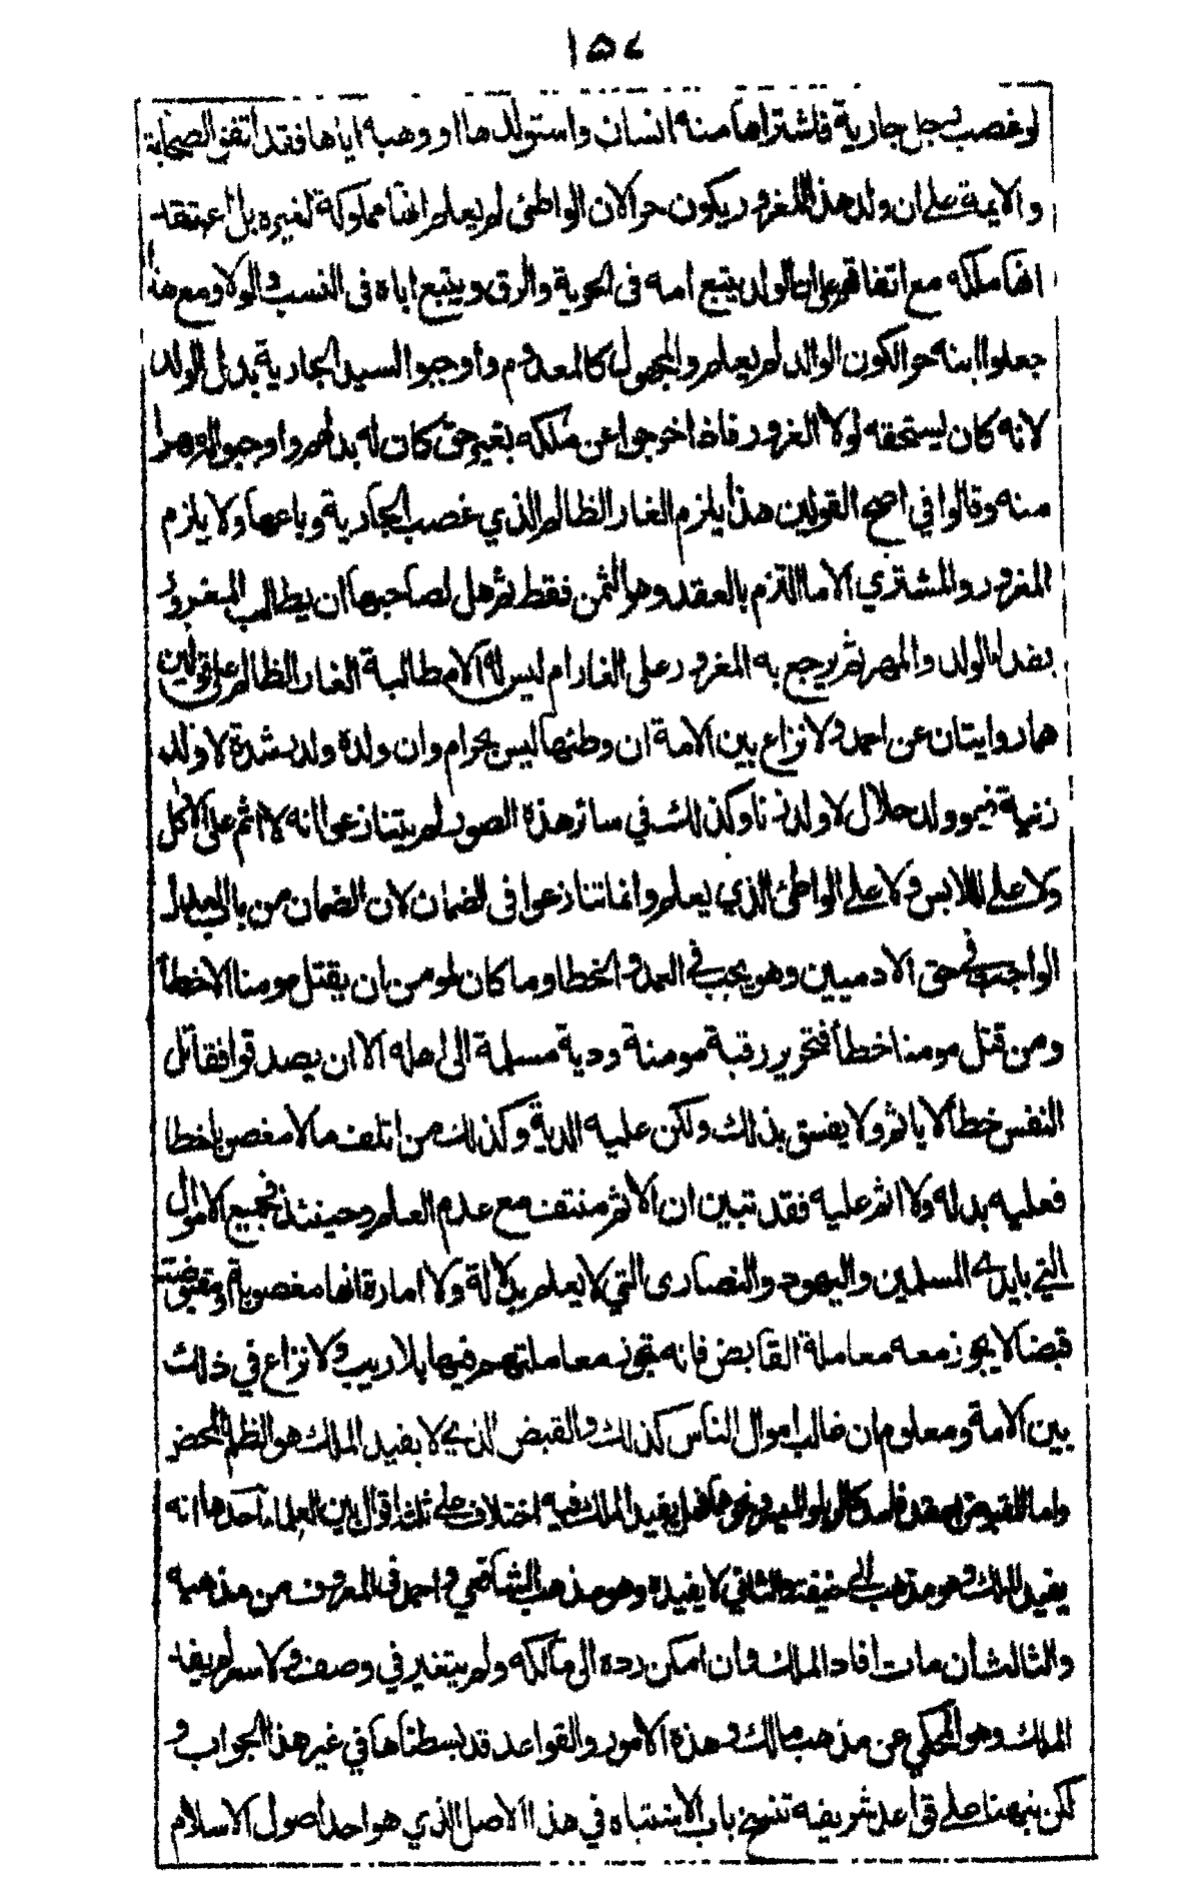 ١٥٧
لو غصب رجل جارية فاشتراها منه انسان واستولدها او وهبه اياها فقد اتفق الصحابة
والايمة على ان ولد هذا المغرور يكون حرا لان الواطئ لم يعلم انها مملوكة لغيره بل اعتقد
انها ملكه مع اتفاقهم على ان الولد يتبع امه في الحرية والرق ويتبع اباه في النسب والولا ومع هذا
جعلوا ابنه حرا لكون الوالد لم يعلم والمجهول كالمعدوم وأوجبوا لسيد الجارية بدل الولد
لانه كان يستحقه لولا الغرور فاذا اخرجوا عن ملكه بغير حق كان له بدلهم واوجبوا له مهرا
منه وقالوا في اصح القولين هذا يلزم الغار الظالم الذي غصب الجارية وباعها ولا يلزم
المغرور والمشتري الا ما التزم بالعقد وهو الثمن فقط ثم هل لصاحبها ان يطالب المغرور
بفدا الولد والمهر ثم يرجع به المغرور على الغار ام ليس له الا مطالبة الغار الظالم على قولين
هما روايتان عن احمد ولا نزاع بين الامة ان وطئها ليس بحرام وان ولدة ولد رشدة لا ولد
زنية فهو ولد حلال لا ولد زنا وكذلك في سائر هذة الصور لم يتنازعوا انه لا اثم على الاكل
ولا على اللابس ولا على الواطئ الذي يعلم وانما تنازعوا في الضمان لان الضمان من باب العدل
الواجب في حق الادميين وهو يجب في العمد والخطا وما كان لمومن ان يقتل مومنا الا خطأ
ومن قتل مومنا خطأ فتحرير رقبة مومنة ودية مسلمة الى اهله الا ان يصدقوا فقاتل
النفس خطأ لا ياثم ولا يفسق بذلك ولكن عليه الدية وكذلك من اتلف مالا مغصوبا خطا
فعليه بدله ولا اثم عليه فقد تبين ان الاثم منتف مع عدم العلم وحينئذ فجميع الاموال
التي بايدي المسلمين واليهود والنصارى التي لا يعلم بدلالة ولا امارة انها مغصوبة او مقبوضة
قبضا لا يجوز معه معاملة القابض فانه تجوز معاملتهم فيها بلا ريب ولا نزاع في ذلك
بين الامة ومعلوم ان غالب اموال الناس كذلك والقبض الذي لا يفيد الملك هو الظلم المحض
واما المقبوض بعقد فاسد كالربا والميسر ونحوهما فهل يفيد الملك فيه اختلاف على ثلثة اقوال بين العلماء احدها انه
يفيد الملك وهو مذهب ابي حنيفة والثاني لا يفيده وهو مذهب الشافعي واحمد في المعروف من مذهبه
والثالث أن مات أفاد الملك وأن امكن رده الى مالكه ولم يتغير في وصف ولا سعر لم يفد
الملك وهو المحكي عن مذهب مالك وهذة الامور والقواعد قد بسطناها في غير هذا الجواب و
لكن نبهنا على قواعد شريفة تفتح باب الاشتباه في هذا الاصل الذي هو احد اصول الاسلام